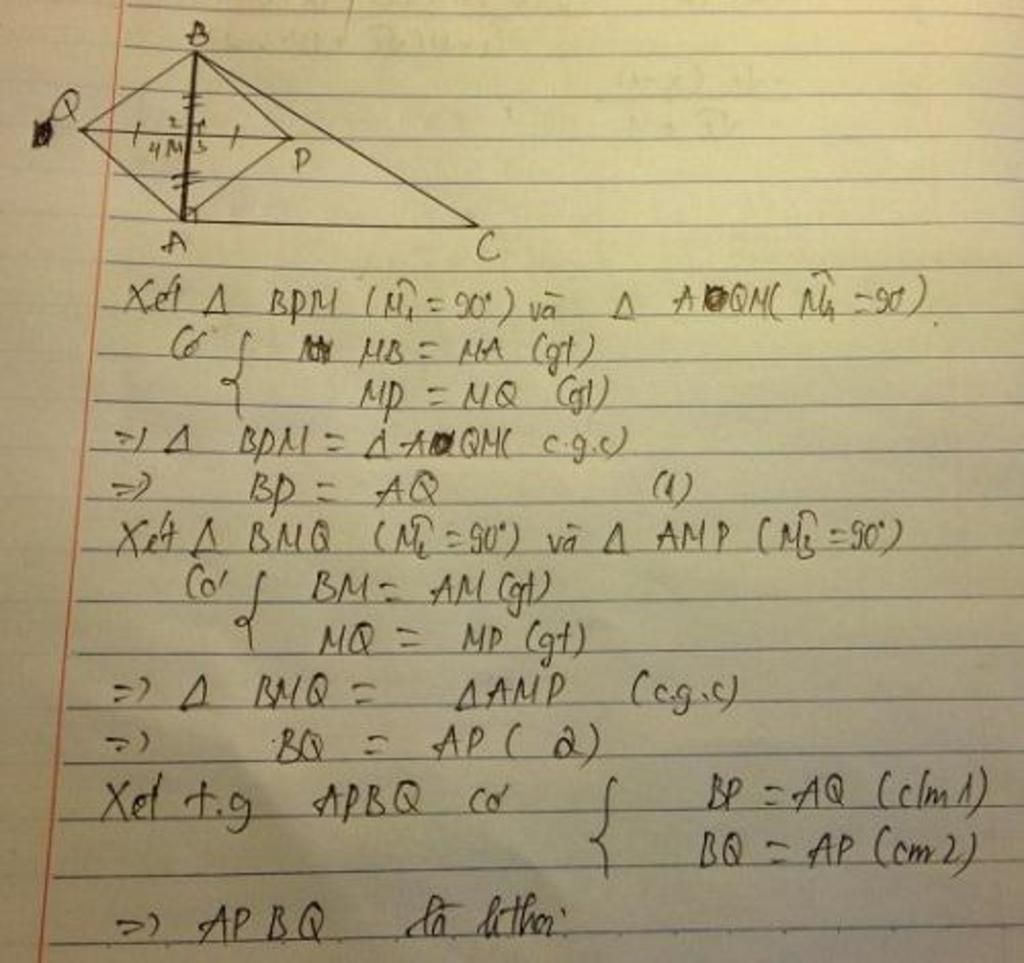 B
Q
2 1
4 M 3
P
A
C
Xét Δ BPM (M̂₁ = 90°) và Δ AQM (M̂₄ = 90°)
Có { MB = MA (gt)
MP = MQ (gt)
=> Δ BPM = Δ AQM (c.g.c)
=> BP = AQ (1)
Xét Δ BMQ (M̂₂ = 90°) và Δ AMP (M̂₃ = 90°)
Có { BM = AM (gt)
MQ = MP (gt)
=> Δ BMQ = Δ AMP (c.g.c)
=> BQ = AP (2)
Xét t.g APBQ có { BP = AQ (c/m 1)
BQ = AP (cm 2)
=> APBQ là hthoi